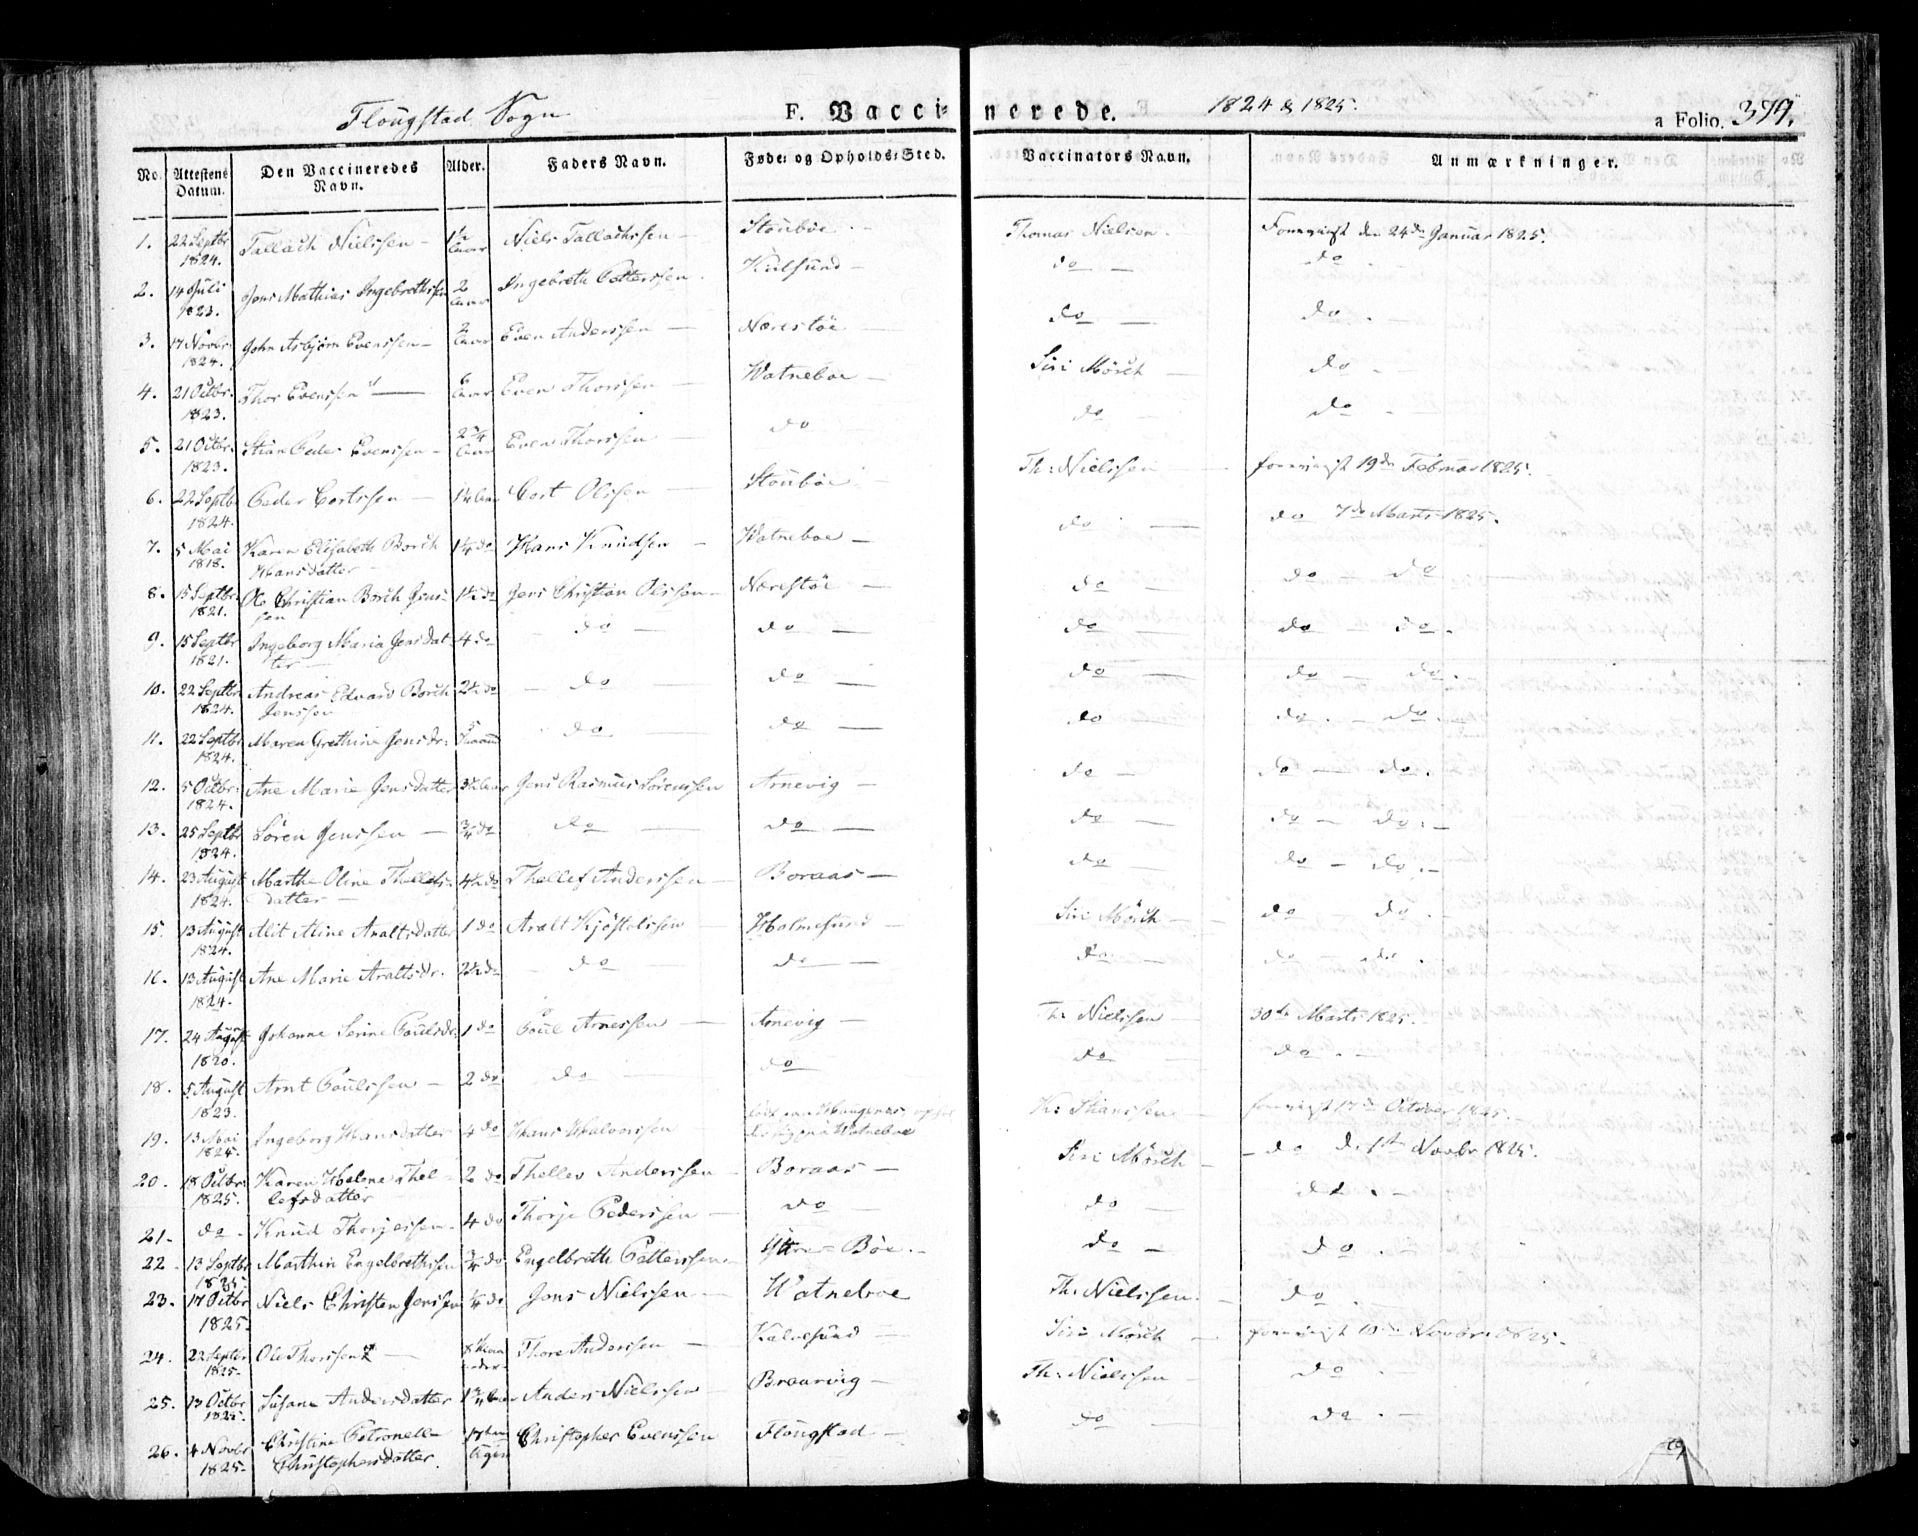 Flougstad Sogn F. Vaccinerede. 1824 & 1825. a Folio. 379.
No. Attestens Datum. Den Vaccineredes Navn. Alder. Faders Navn. Føde- og Opholds-Sted. Vaccinators Navn. Anmærkninger.
1. 22 Septbr 1824. Tallach Nielssen 1½ Aar Niels Tallachssen Stoubøe Thomas Nielsen Foreviist den 24de Januar 1825.
2. 14 Juli 1823. Jens Mathias Ingebrethssen 2 Aar Ingebreth Petterssen do do
3. 17 Novbr. 1824. John Asbjørn Evenssen 2 Aar Even Anderssen Nærestøe do do
4. 21 Octbr. 1823. Thor Evenssen 6 Aar Even Thorssen Watneboe Siri Mörch do
5. 21 Octbr. 1823. Stian Peder Evenssen 2¾ Aar Even Thorssen do do do
6. 22 Septbr 1824. Peder Cortssen Cort Olssen Stoubøe Th: Nielssen foreviist 19de Februar 1825.
7. 5 Mai 1818. Karen Elisabeth Borch Hansdatter 1¼ do Hans Knudsen Watneboe do do 7de Marts 1825.
8. 15 Septbr. 1821. Ole Christian Borch Jenssen 1½ do Jens Christian Olssen Nærestöe do do do
9. 15 Septbr 1821. Ingeborg Maria Jensdatter 4 do do do do do do.
10. 22 Septbr. 1824. Andreas Edvard Borch Jenssen 2½ do do do do do do.
11. 22 Septbr 1824. Maren Grethine Jensdr. 5 do do do do do.
12. 5 Octbr. 1824. Ane Marie Jensdatter 3½ Aar Jens Rasmus Sörenssen Arnevig do do do.
13. 25 Septbr 1824. Sören Jenssen ¾ do do do do do do.
14. 23 August 1824. Marthe Oline Thellefsdatter 4½ do Thellef Anderssen Boraas do do do.
15. 13 August 1824. Alit Aline Araltsdatter 1 do Aralt Kjöstolssen Holmesund Siri Mörch do do.
16. 13 August 1824. Ane Marie Araltsdr. 2½ do do do do do do.
17. 24 August 1820. Johanne Serine Poulsdr. 1 do Poul Arnessen Arnevig Th: Nielssen 30te Marts 1825.
18. 5 August 1823. Arnt Poulssen 2 do do do do do.
19. 13 Mai 1825. Ingeborg Hansdatter 4 do Hans Halvorssen Watneboe K: Stianssen foreviist 17de October 1825.
20. 18 Octbr. 1825. Karen Helene Thellefsdatter 2 do Thellev Anderssen Boraas Siri Mörch do d. 1st Novbr 1825.
21. do Knud Thorjessen 4 do Thorje Pederssen do do do
22. 13 Septbr 1825. Marthin Engelbrethssen ¾ do Engelbreth Petterssen Yttre-Bøe do do
23. 17 Octbr 1825. Niels Christen Jenssen ¼ do Jens Nielssen Watneboe Th: Nielssen do
24. 22 Septbr 1825. Ole Thorssen Thore Anderssen Kalvesund Siri Mörch foreviist 10de Novbr 1825.
25. 13 Octbr 1825. Susane Andersdatter 1¾ Aar Anders Nielssen Braarvig Th: Nielssen do
26. 4 Novbr 1825. Christine Petronelle Christophersdatter. Christopher Evenssen Flougstad do do